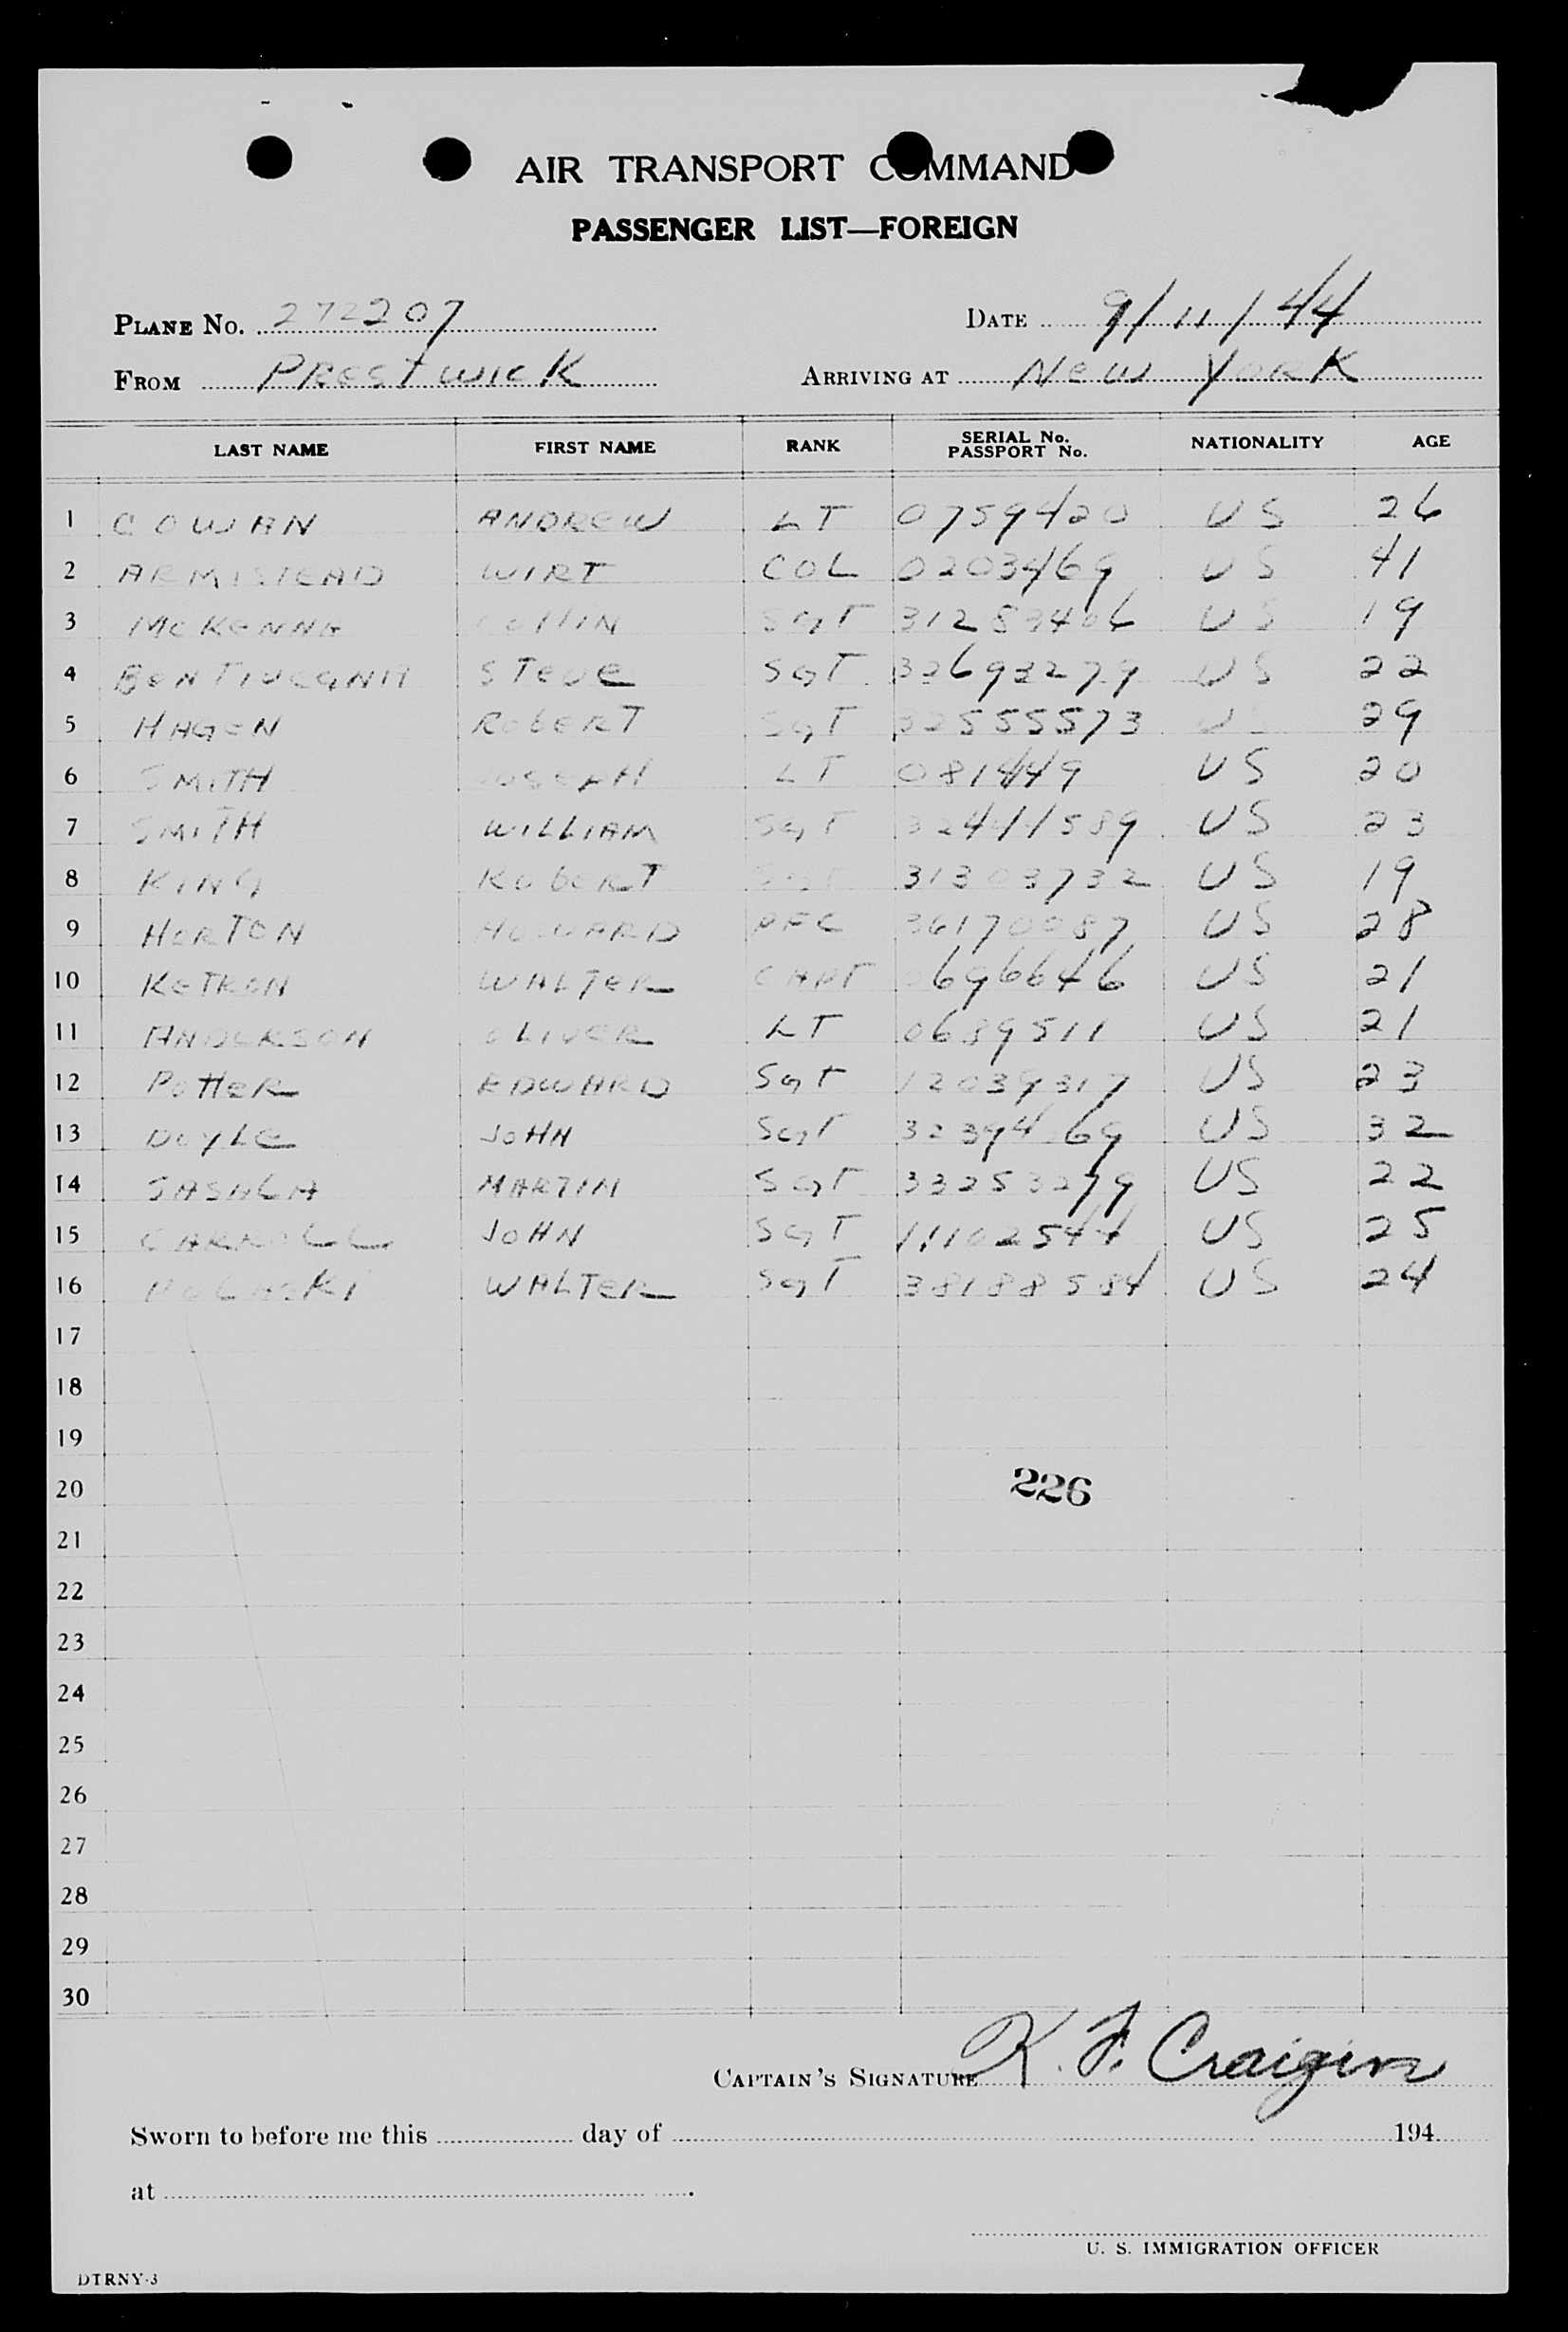 AIR TRANSPORT COMMAND
PASSENGER LIST—FOREIGN
PLANE No. 272207 DATE 9/11/44
FROM PRESTWICK ARRIVING AT NEW YORK
LAST NAME FIRST NAME RANK SERIAL No. PASSPORT No. NATIONALITY AGE
1 COWAN ANDREW LT 0759420 US 26
2 ARMISTEAD WIRT COL 0203469 US 41
3 MCKENNA SGT US 19
4 STEVE SGT 32693279 US 22
5 HAGEN ROBERT SGT 32555573 US 29
6 SMITH JOSEPH LT 0814449 US 20
7 SMITH WILLIAM SGT 32411589 US 23
8 KING ROBERT SGT 31303732 US 19
9 HORTON HOWARD PFC 36170087 US 28
10 KETRON WALTER CAPT 696646 US 21
11 ANDERSON OLIVER LT 0689511 US 21
12 POTTER EDWARD SGT 12039317 US 23
13 DOYLE JOHN SGT US 32
14 MARTIN SGT 33253279 US 22
15 CARROLL JOHN SGT 11102544 US 25
16 WALTER SGT 38188584 US 24
17
18
19
20 226
21
22
23
24
25
26
27
28
29
30
CAPTAIN'S SIGNATURE K. F. Craigin
Sworn to before me this day of 194
at .
U. S. IMMIGRATION OFFICER
DTRNY-3